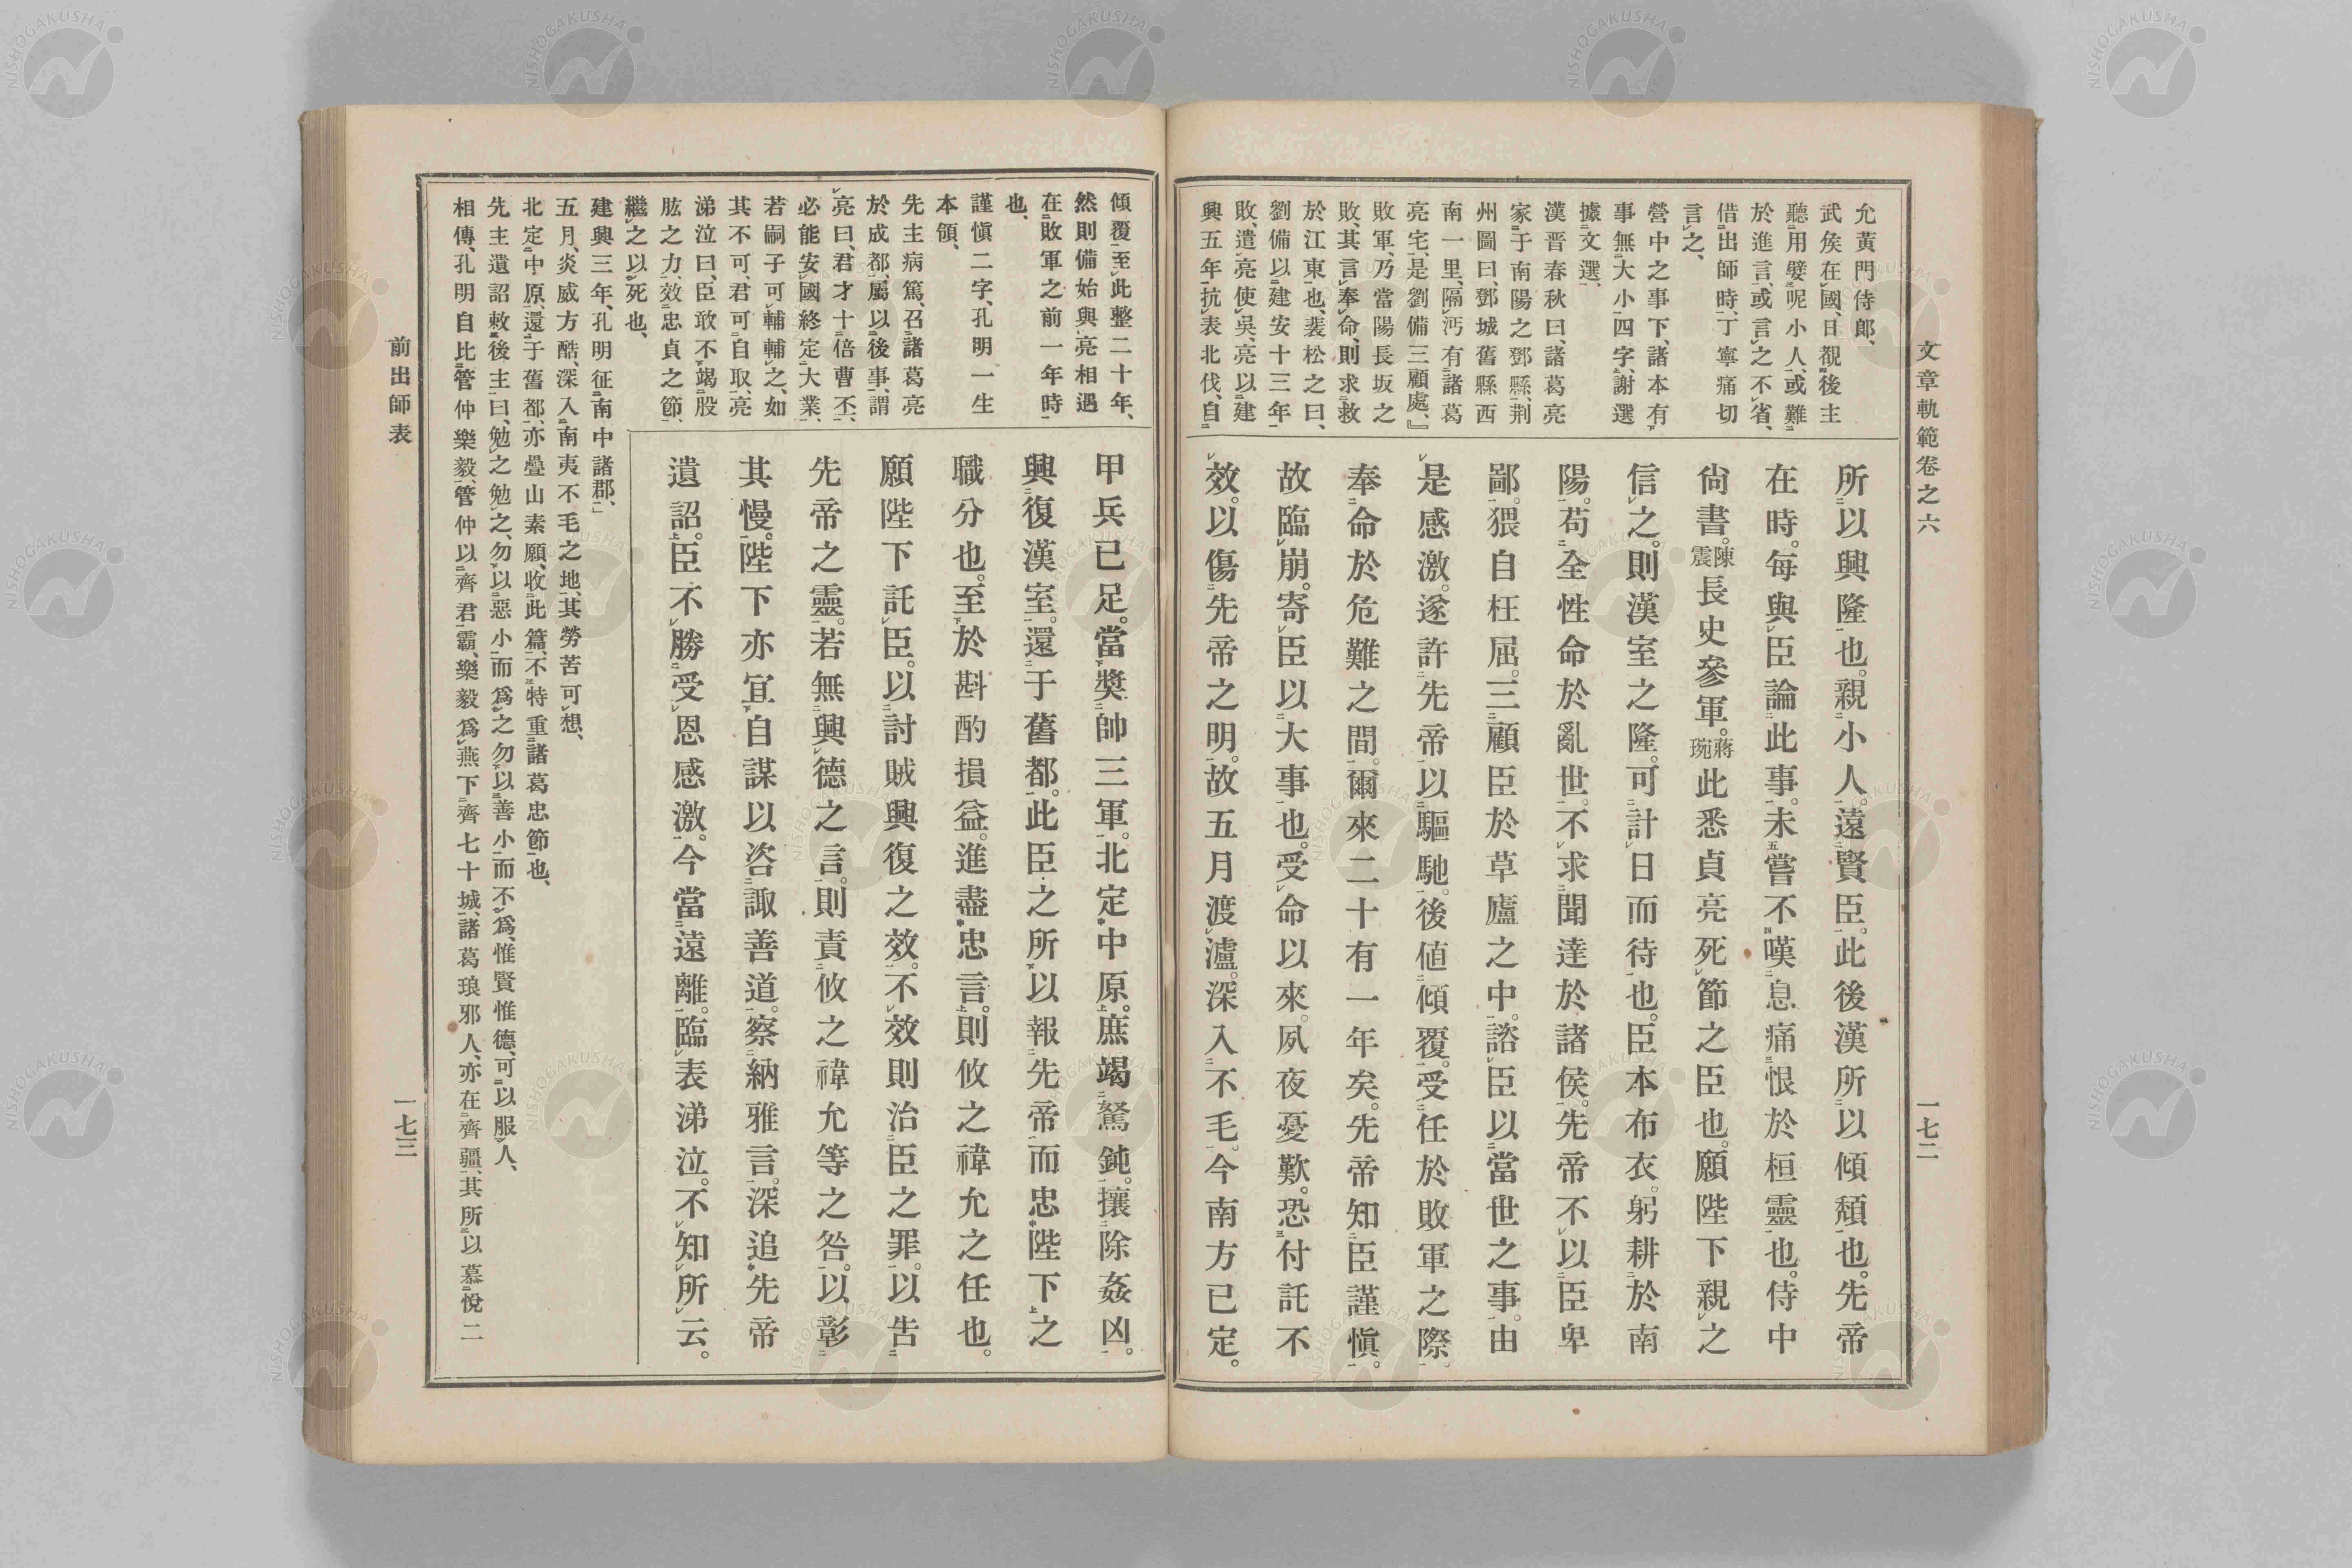 文章軌範卷之六
一七二
允黃門侍郎、
武矦在國、日覩後主
聽用嬖呢小人、或難
於進言、或言之不省、
借出師時、丁寧痛切
言之、
營中之事下、諸本有
事無大小四字、謝選
據文選、
漢晋春秋曰、諸葛亮
家于南陽之鄧縣、荆
州圖曰、鄧城舊縣西
南一里、隔沔有諸葛
亮宅、是劉備三顧處、』
敗軍、乃當陽長坂之
敗、其言奉命、則求救
於江東也、裴松之曰、
劉備以建安十三年
敗、遣亮使吳、亮以建
興五年抗表北伐、自
所以興隆也。親小人。遠賢臣。此後漢所以傾頹也。先帝
在時。每與臣論此事。未嘗不嘆息痛恨於桓靈也。侍中
尙書。陳震長史參軍。蔣琬此悉貞亮死節之臣也。願陛下親之
信之。則漢室之隆。可計日而待也。臣本布衣。躬耕於南
陽。苟全性命於亂世。不求聞達於諸侯。先帝不以臣卑
鄙。猥自枉屈。三顧臣於草廬之中。諮臣以當世之事。由
是感激。遂許先帝以驅馳。後値傾覆。受任於敗軍之際。
奉命於危難之間。爾來二十有一年矣。先帝知臣謹愼。
故臨崩。寄臣以大事也。受命以來。夙夜憂歎。恐付託不
效。以傷先帝之明。故五月渡瀘。深入不毛。今南方已定。
傾覆至此整二十年、
然則備始與亮相遇
在敗軍之前一年時
也、
謹愼二字、孔明一生
本領、
先主病篤、召諸葛亮
於成都、屬以後事、謂
亮曰、君才十倍曹丕、
必能安國終定大業、
若嗣子可輔輔之、如
其不可、君可自取、亮
涕泣曰、臣敢不竭股
肱之力、效忠貞之節、
繼之以死也、
甲兵已足。當奬帥三軍。北定中原。庶竭駑鈍。攘除姦凶。
興復漢室。還于舊都。此臣之所以報先帝而忠陛下之
職分也。至於斟酌損益。進盡忠言。則攸之禕允之任也。
願陛下託臣。以討賊興復之效。不效則治臣之罪。以吿
先帝之靈。若無興德之言。則責攸之禕允等之咎。以彰
其慢。陛下亦宜自謀以咨諏善道。察納雅言。深追先帝
遺詔。臣不勝受恩感激。今當遠離。臨表涕泣。不知所云。
建興三年、孔明征南中諸郡、」
五月、炎威方酷、深入南夷不毛之地、其勞苦可想、
北定中原、還于舊都、亦疊山素願、收此篇、不特重諸葛忠節也、
先主遺詔敕後主曰、勉之勉之、勿以惡小而爲之勿以善小而不爲、惟賢惟德、可以服人、
相傳、孔明自比管仲樂毅、管仲以齊君霸、樂毅爲燕下齊七十城、諸葛琅邪人、亦在齊疆、其所以慕悅二
前出師表
一七三